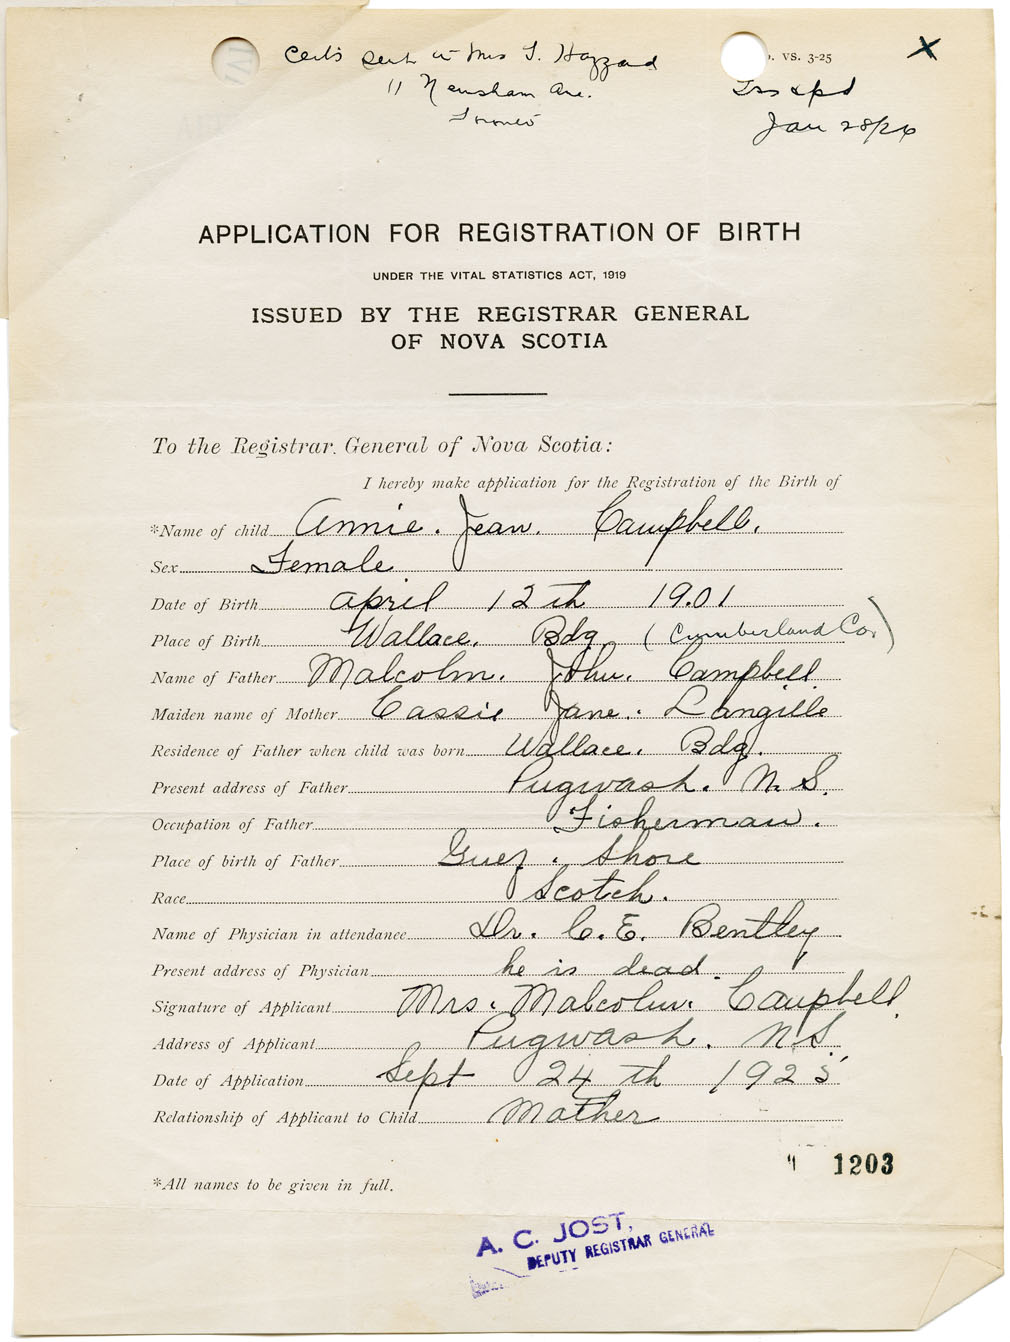 Cert's sent to Mrs T. Hazzard
11 Newsham Ave.
Toronto
VS. 3-25
X
Jan 28/26
APPLICATION FOR REGISTRATION OF BIRTH
UNDER THE VITAL STATISTICS ACT, 1919
ISSUED BY THE REGISTRAR GENERAL
OF NOVA SCOTIA
To the Registrar General of Nova Scotia:
I hereby make application for the Registration of the Birth of
*Name of child Annie. Jean. Campbell.
Sex Female
Date of Birth April 12th 1901
Place of Birth Wallace. Bdg. (Cumberland Co.)
Name of Father Malcolm. John. Campbell
Maiden name of Mother Cassie Jane. Langille
Residence of Father when child was born Wallace. Bdg.
Present address of Father Pugwash. N. S.
Occupation of Father Fisherman.
Place of birth of Father Shore
Race Scotch.
Name of Physician in attendance Dr. C. E. Bentley
Present address of Physician he is dead.
Signature of Applicant Mrs. Malcolm. Campbell.
Address of Applicant Pugwash. N.S.
Date of Application Sept 24th 1925
Relationship of Applicant to Child Mother
1203
*All names to be given in full.
A. C. JOST,
DEPUTY REGISTRAR GENERAL